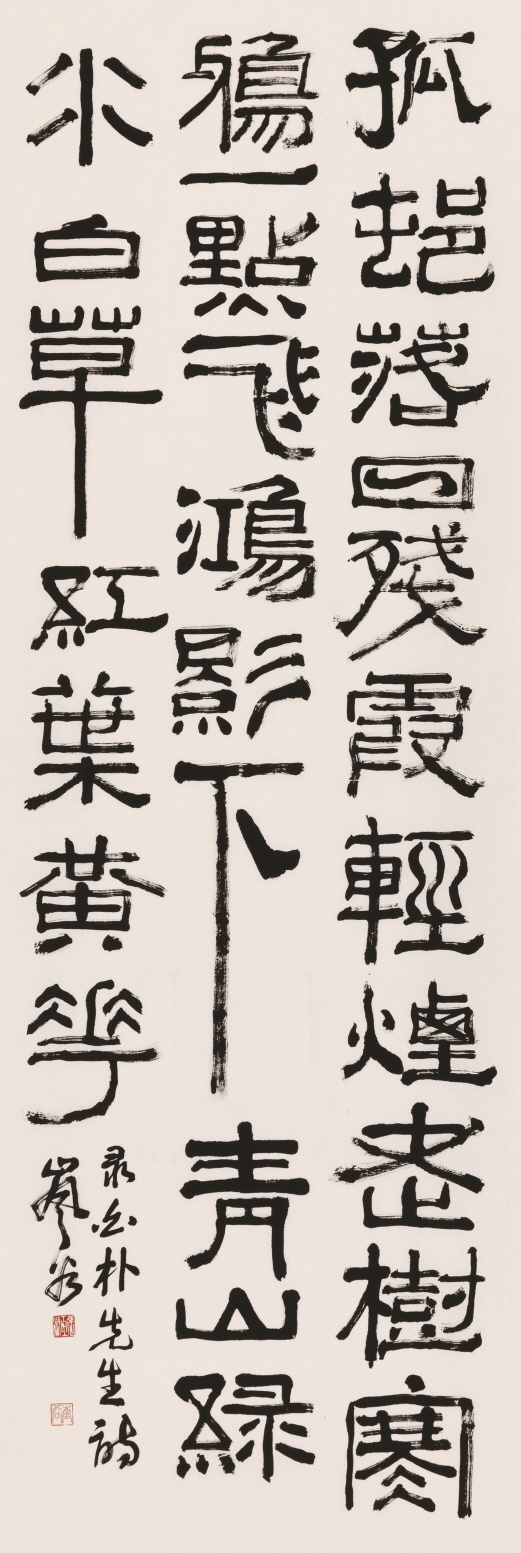 孤邨落日殘霞輕煙老樹寒
鴉一點飛鴻影下青山綠
水白草紅葉黄花
录白朴先生詩